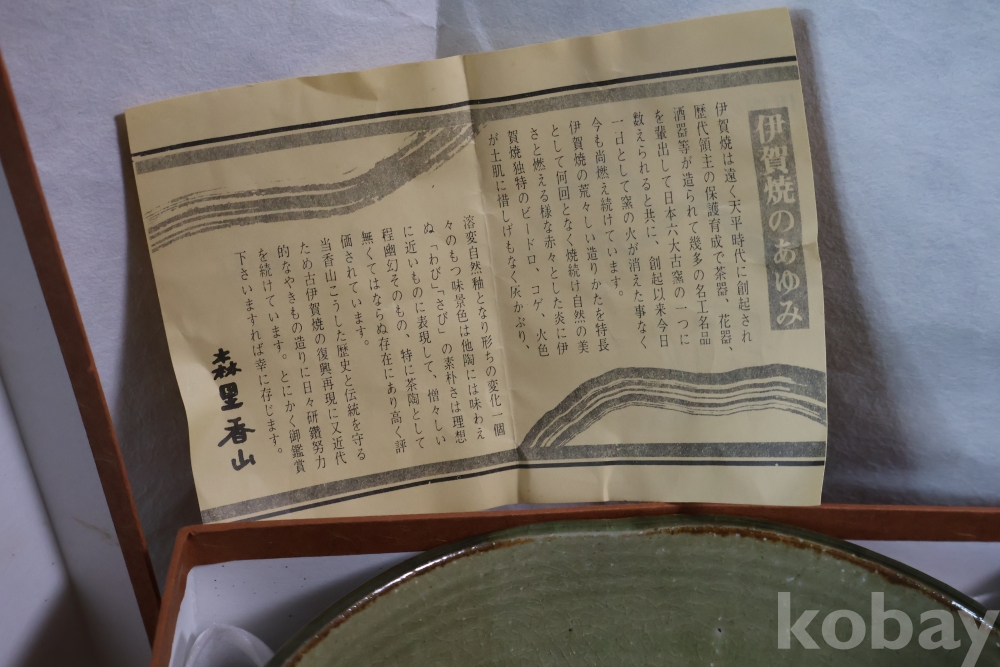 伊賀焼のあゆみ
伊賀焼は遠く天平時代に創起され
歴代領主の保護育成で茶器、花器、
酒器等が造られて幾多の名工名品
を輩出して日本六大古窯の一つに
数えられると共に、創起以来今日
一日として窯の火が消えた事なく
今も尚燃え続けています。
伊賀焼の荒々しい造りかたを特長
として何回となく焼続け自然の美
さと燃える様な赤々とした炎に伊
賀焼独特のビードロ、コゲ、火色
が土肌に惜しげもなく灰かぶり、
溶変自然釉となり形ちの変化一個
々のもつ味景色は他陶には味わえ
ぬ「わび」「さび」の素朴さは理想
に近いものに表現して、憎々しい
程幽幻そのもの、特に茶陶として
無くてはならぬ存在にあり高く評
価されています。
当香山こうした歴史と伝統を守る
ため古伊賀焼の復興再現に又近代
的なやきもの造りに日々研鑽努力
を続けています。とにかく御鑑賞
下さいますれば幸に存じます。
森里香山
kobay